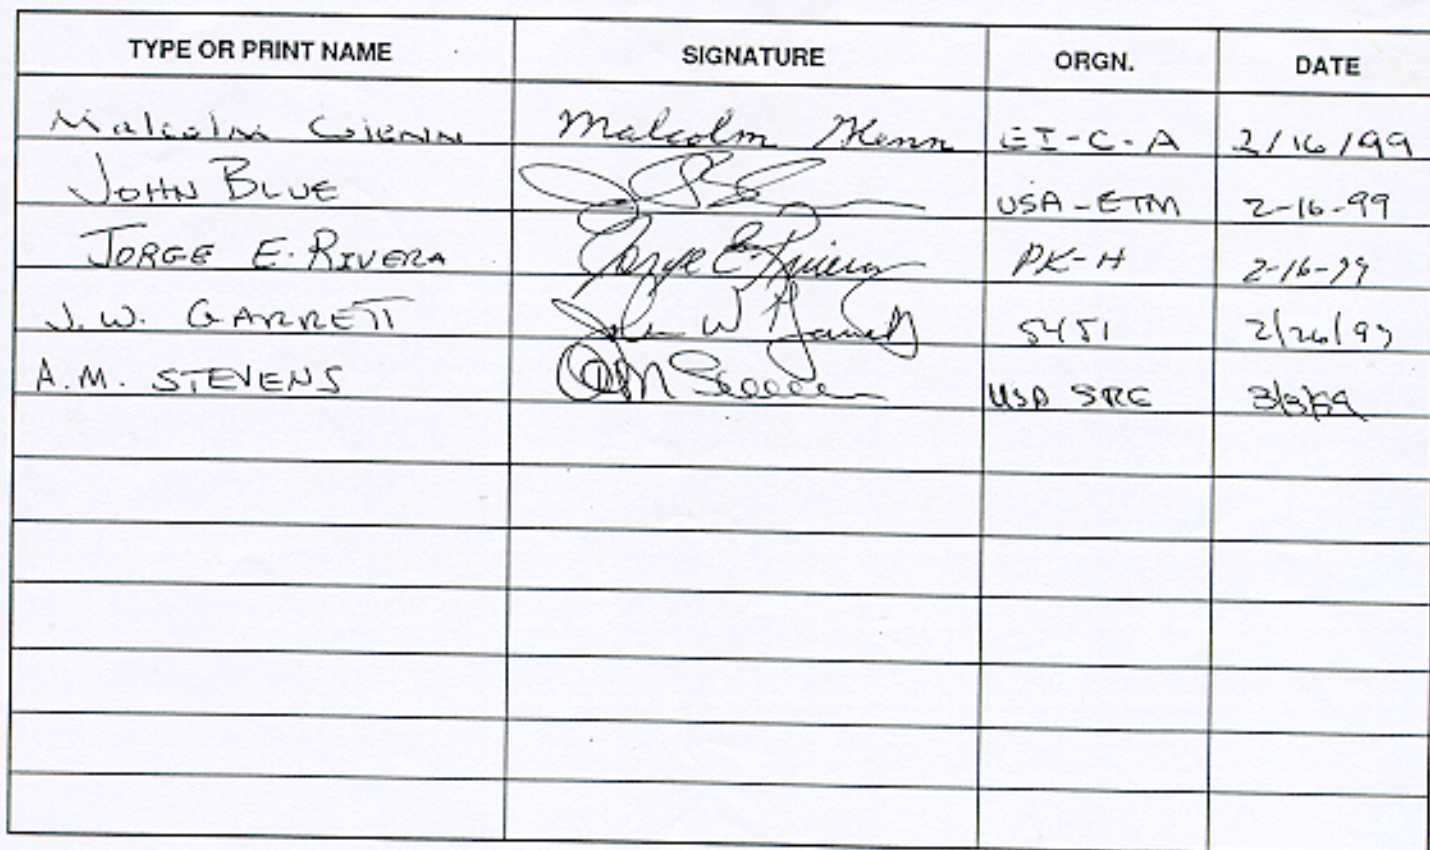 TYPE OR PRINT NAME SIGNATURE ORGN. DATE
Malcolm Glenn Malcolm Glenn EI-C-A 2/16/99
JOHN BLUE USA-ETM 2-16-99
JORGE E. RIVERA Jorge E. Rivera PK-H 2-16-99
J.W. GARRETT John W Garrett 5451 2/26/99
A.M. STEVENS AM Stevens USA SRE 3/3/99